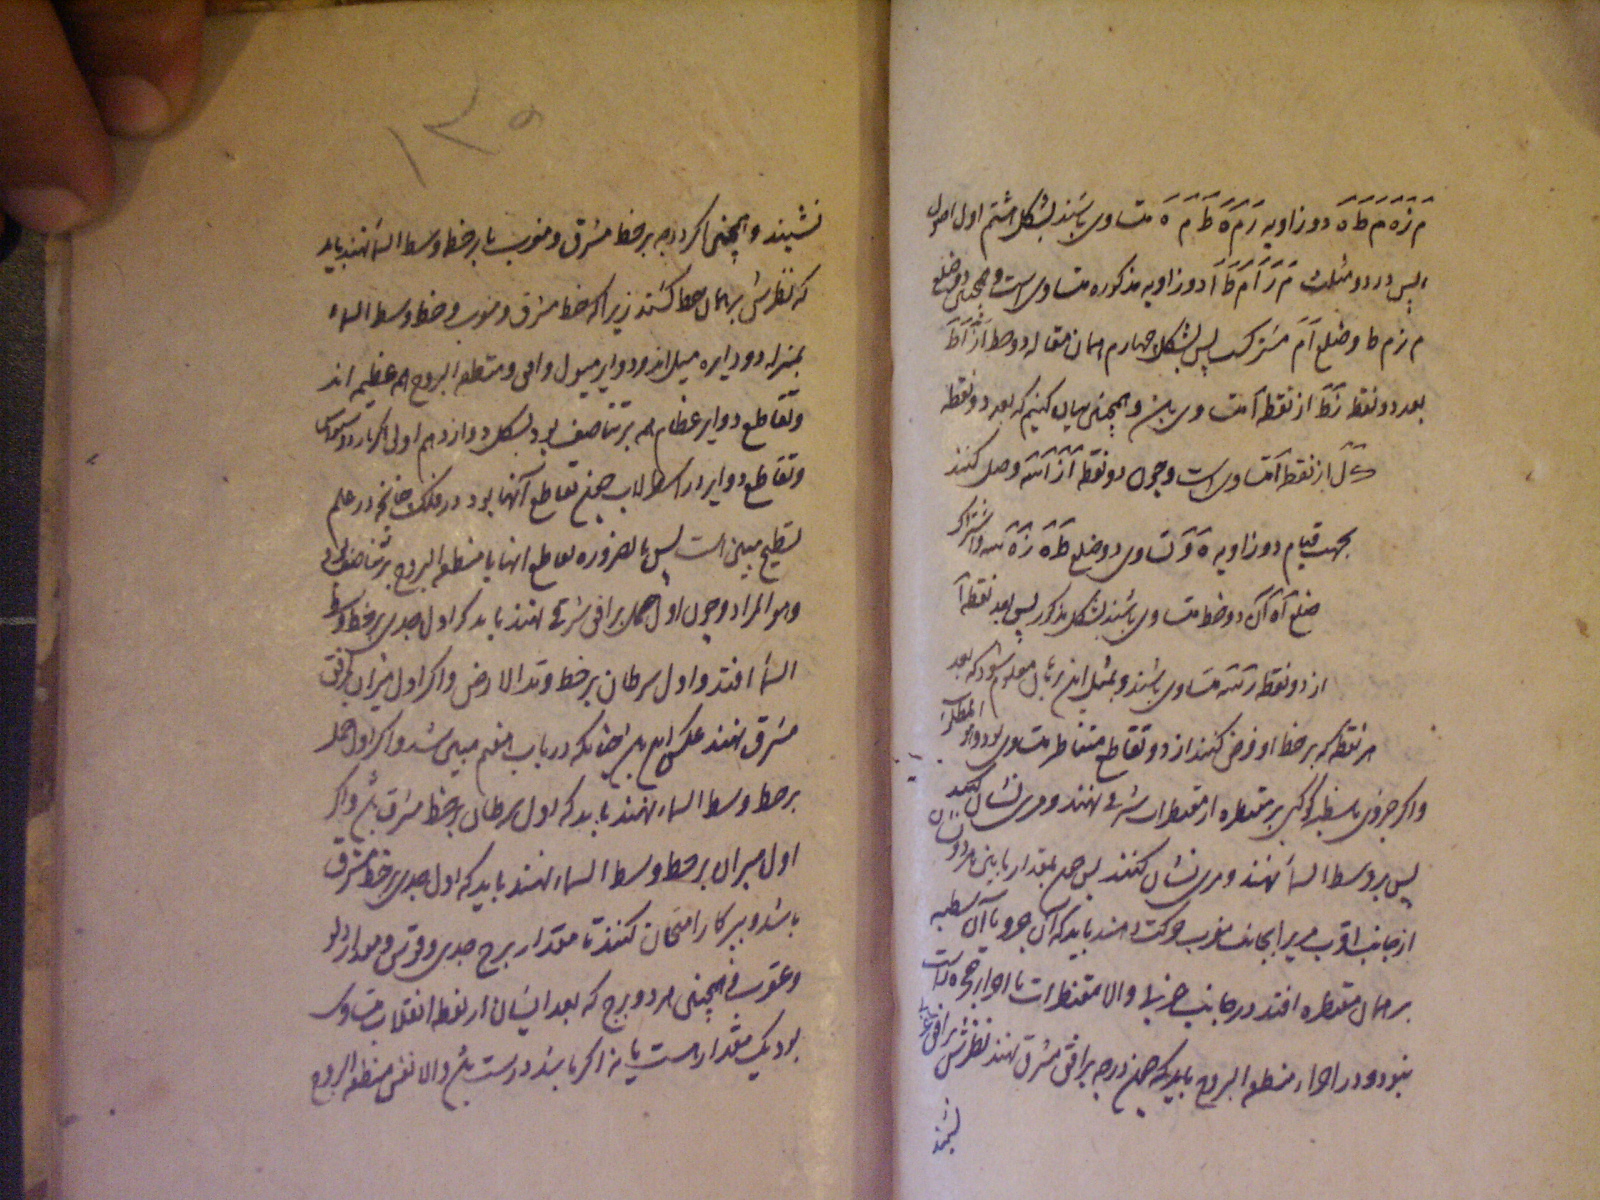 م ز ه م ط ه دو زاویه ز م ه ط م ه متساوی باشند بشکل هشتم اول اصول
پس در دو مثلث م ز ا م ط ا دو زاویه مذکوره متساوی است و همچنین دو ضلع
م ز م ط و ضلع ا م مشترک پس بشکل چهارم همان مقاله دو خط ا ز ا ط
بعد دو نقطه ز ط از نقطه ا متساوی باشد و همچنین بیان کنیم که بعد دو نقطه
ک ل از نقطه ا متساوی است و چون دو نقطه وصل کنند
بجهت قیام دو زاویه ه و تساوی دو ضلع ط ه ز ه و اشتراک
ضلع ا ه دو خط متساوی باشند بشکل مذکور پس بعد نقطه ا
از دو نقطه متساوی باشند و بمثل این برهان معلوم شود که بعد
هر نقطه که بر خط او فرض کنند از دو تقاطع متناظر متساوی بود و هو المطلوب
و اگر جزوی یا شظیه کوکبی بر مقنطره از مقنطرات شرقی نهند و مری نشان کنند
پس بر وسط السما نهند و مری نشان کنند پس بمقدار ما بین هر دو نشان
از جانب اقرب مری را بجانب مغرب حرکت دهند باید که آن جزو یا آن شظیه
بر همان مقنطره افتد در جانب غربی والا مقنطرات یا اجزاء حجره راست
نبود و در اجزاء منطقة البروج باید که چون درجه بر افق مشرق نهند نظیرش بر افق مغرب
نشیند
۱۳۵
نشیند و همچنین اگر درجه بر خط مشرق و مغرب یا بر خط وسط السما نهند باید
که نظیرش بر همان خط افتد زیرا که خط مشرق و مغرب و خط وسط السماء
بمنزله دو دایره میل اند و دوایر میول و افق و منطقة البروج همه عظیمه اند
و تقاطع دوایر عظام همه بر تناصف بود بشکل دوازدهم اولی اکر ثاوذوسیوس
و تقاطع دوایر در اسطرلاب همچون تقاطع آنها بود در فلک چنانچه در علم
تسطیح مبین است پس بالضروره تقاطع اینها با منطقة البروج بر تناصف بود
و هو المراد و چون اول حمل بر افق شرقی نهند باید که اول جدی بر خط وسط
السما افتد و اول سرطان بر خط وتد الارض و اگر اول میزان بر افق
مشرق نهند عکس این باشد چنانکه در باب هفتم مبین شد و اگر اول حمل
بر خط وسط السماء نهند باید که اول سرطان بر خط مشرق باشد و اگر
اول میزان بر خط وسط السماء نهند باید که اول جدی بر خط مشرق
باشد و بپرکار امتحان کنند تا مقدار برج جدی و قوس و مقدار دلو
و عقرب و همچنین هر دو برج که بعد ایشان از نقطه انقلاب متساوی
بود یک مقدار هست یا نه اگر باشد درست باشد والا نفس منطقة البروج